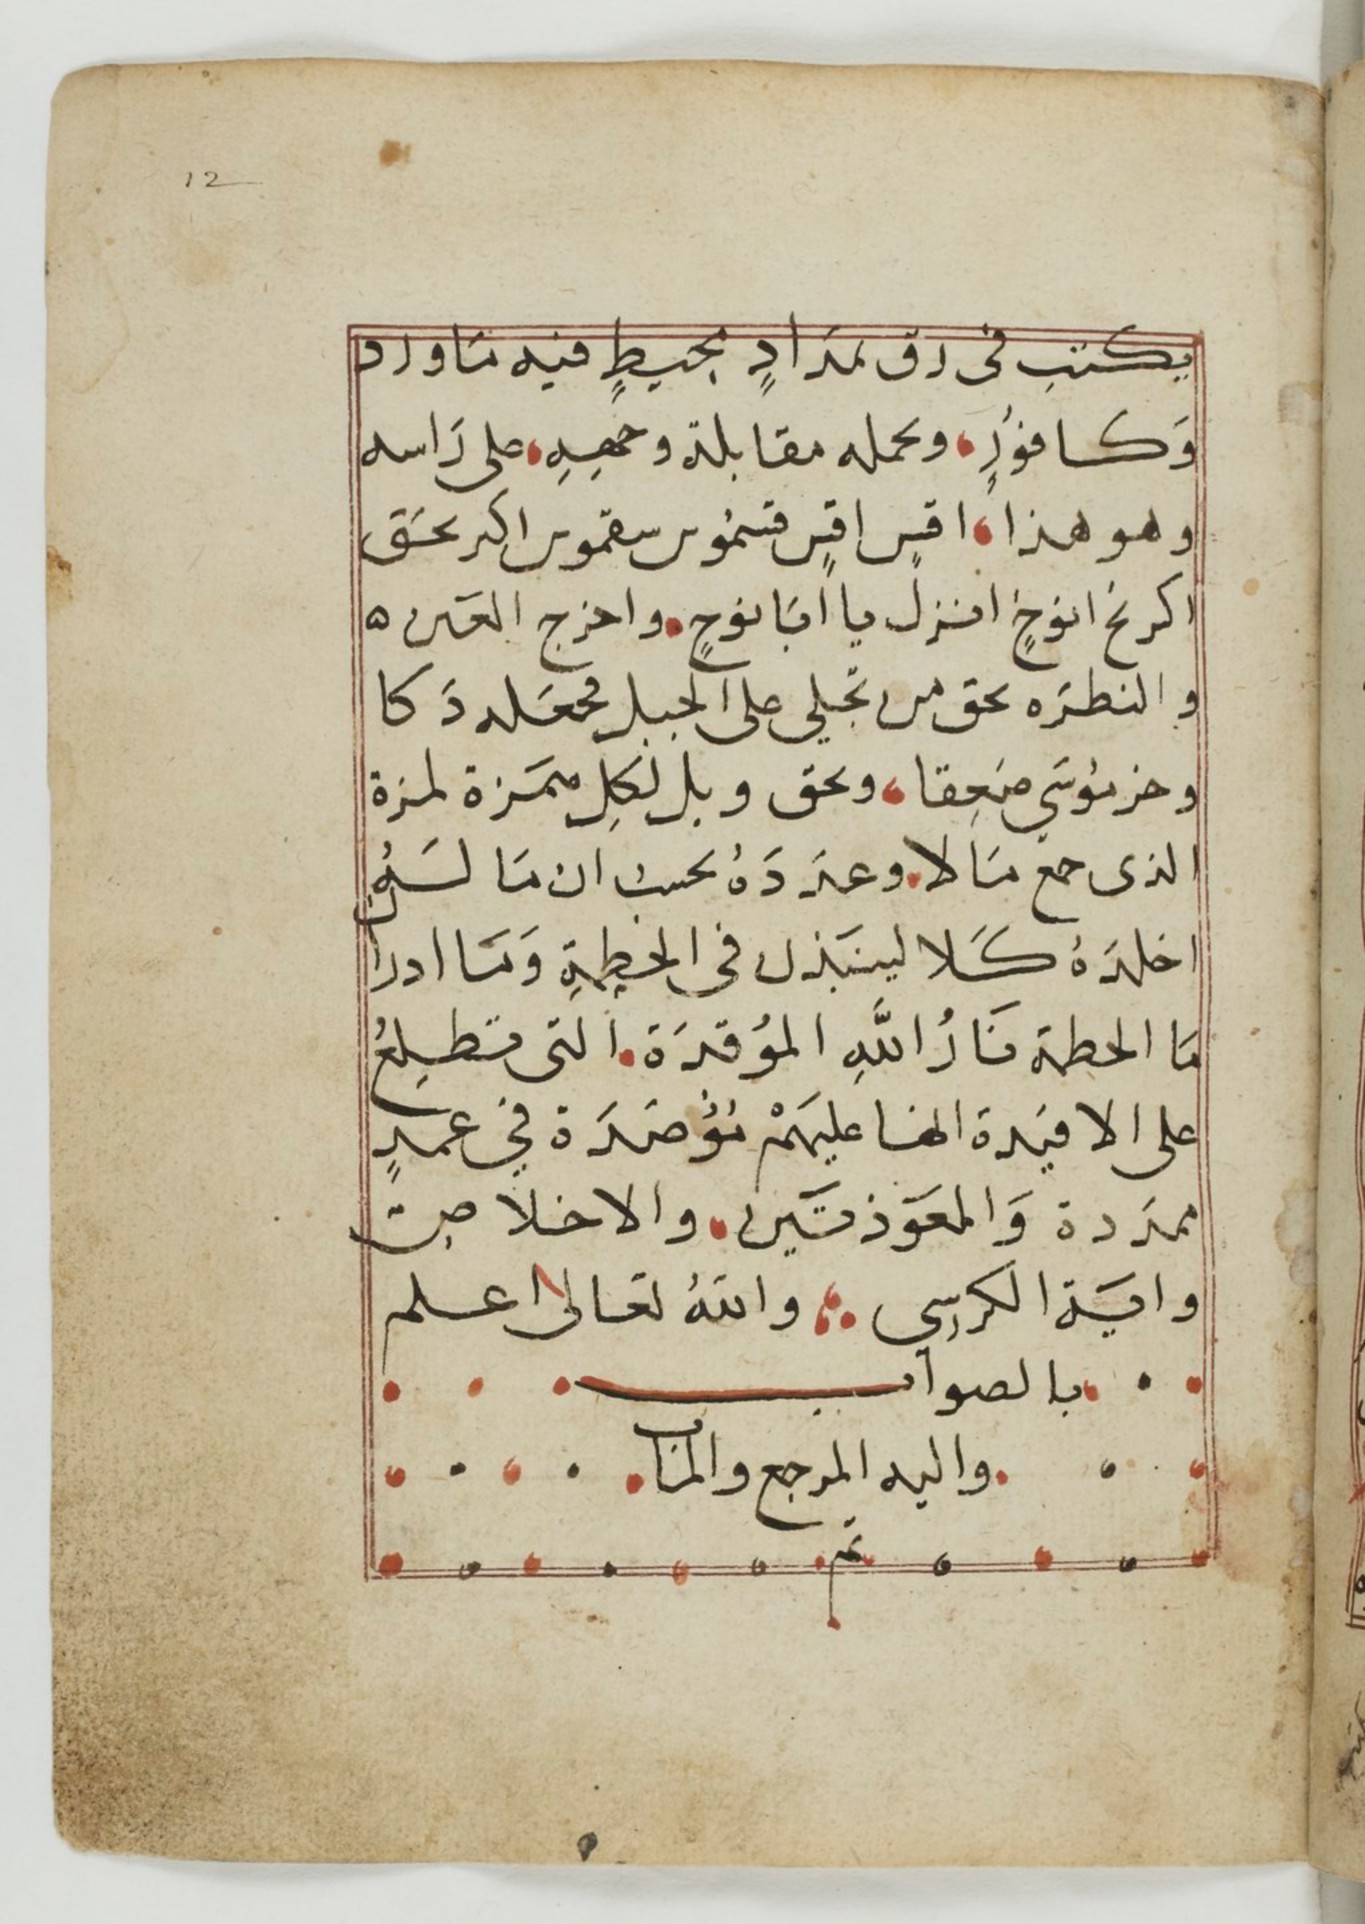 12
يكتب في رق بمَدادٍ بحيطٍ فيه مَاورد
وَكافورٍ، ويحمله مقابلة وجهِهِ، على رَاسه
وهو هذا، اقسٍ اقسٍ قسموس سقموس اكر بحَق
اكرخ انوخٍ انزل يا ابَا نوحٍ. واخرج العَين ه
والنطرَه بحق من تجلي على الجبل فجعَله دَكا
وخر موسَي صَعِقا، وبحق ويل لكلِ همَزة لمزة
الذى جمع مَالا. وعدَدَهُ يحسِب ان مَا لَهُ
اخلدَهُ كَلا لينبَذن فى الحطِمةِ وَمَا ادرا
مَا الحطمة نَارُ اللَّهِ الموُقدَة. التى تطلِعُ
على الافيَدة انها عليهَمْ مُؤصَدَة فِي عمدٍ
ممدَدة وَالمعَوّذتَين. والاخلاص
وايَة الكرسِي والله تعالى اعلم
بالصواب
واليه المرجع والمآب
تم